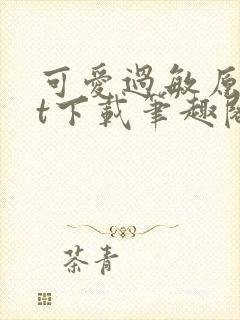 可愛過敏原
t下載筆趣閣
茶青